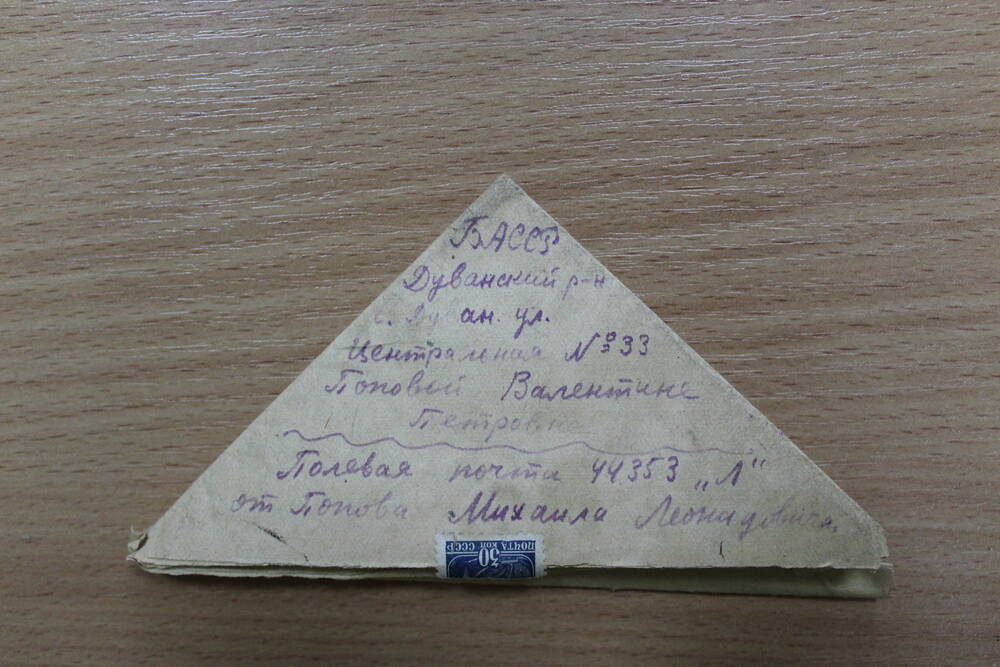 БАССР
Дуванский р-н
с. Дуван. ул.
Центральная № 33
Поповой Валентине
Петровне
Полевая почта 44353 „Л"
от Попова Михаила Леонидовича.
ПОЧТА СССР
30 КОП